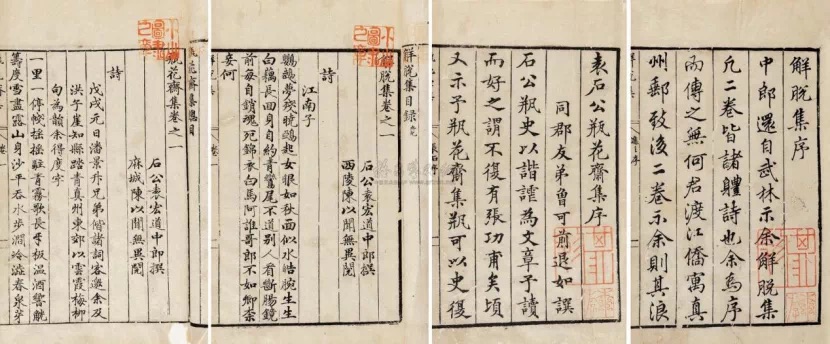 解脫集序
中郎還自武林示余解脫集
凡二卷皆諸體詩也余爲序
而傳之無何君渡江僑寓真
州郵致後二卷示余則其浪
袁石公瓶花齋集序
同郡友弟魯可前退如譔
石公瓶史以諧謔爲文章予讀
而好之謂不復有張功甫矣頃
又示予瓶花齋集瓶可以史復
解脫集目錄
解脫集卷之一
石公袁宏道中郎撰
西陵陳以聞無異閱
詩
江南子
鸚鵡夢殘曉鵶起女眼如秋面似水皓腕生生
白藕長回身自約青鸞尾不道別人看斷腸鏡
前每自銷魂死錦衣白馬阿誰哥郎不如卿柰
妾何
瓶花齋集卷之一
石公袁宏道中郎撰
麻城陳以聞無異閱
詩
戊戌元日潘景升兄弟偕諸詞客邀余及
洪子崖知縣踏青真州東郊以雲霞梅柳
句為韻余得度字
一里一停幰搖搖駐青霧歌長手板溫酒響觥
籌度雪盡露山身沙平吞水步澗冷滋春泉芽